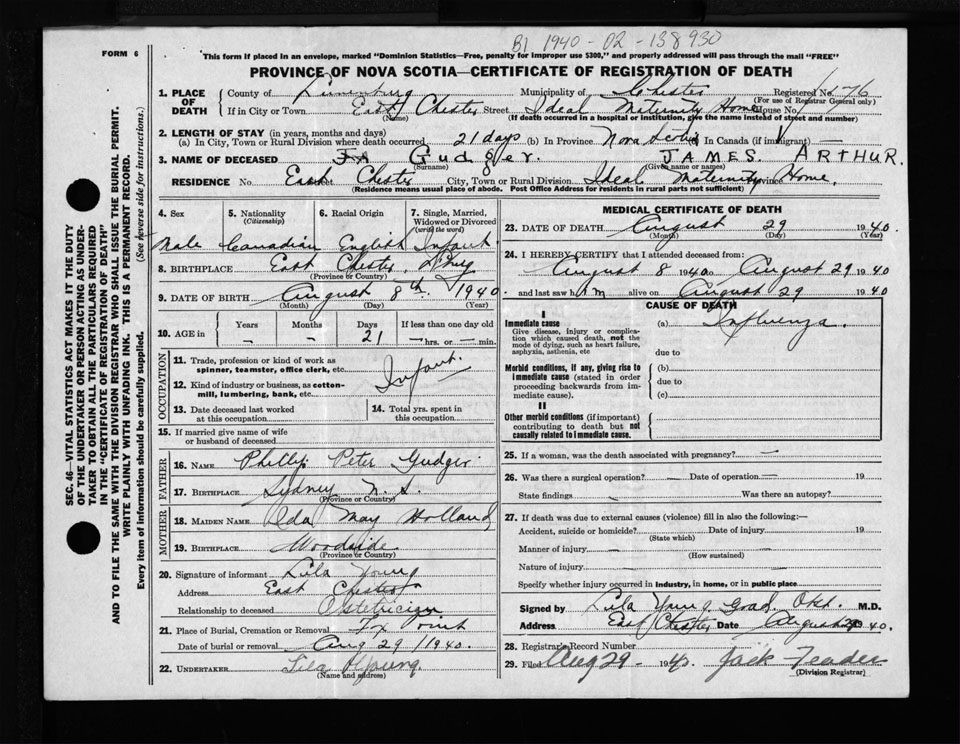 B1 1940-02-138930
FORM 6
This form if placed in an envelope, marked "Dominion Statistics—Free, penalty for improper use $300," and properly addressed will pass through the mail "FREE"
PROVINCE OF NOVA SCOTIA—CERTIFICATE OF REGISTRATION OF DEATH
1. PLACE OF DEATH
County of Lunenburg Municipality of Chester Registered No. 176
(For use of Registrar General only)
If in City or Town East Chester Street Ideal Maternity Home House No.
(Name) (If death occurred in a hospital or institution, give the name instead of street and number)
2. LENGTH OF STAY (in years, months and days)
(a) In City, Town or Rural Division where death occurred 21 days (b) In Province Nova Scotia In Canada (if immigrant) —
3. NAME OF DECEASED Gudger. JAMES. ARTHUR.
(Surname) (Given name or names)
RESIDENCE No. East Chester City, Town or Rural Division Ideal Maternity Province Home.
(Residence means usual place of abode. Post Office Address for residents in rural parts not sufficient)
4. Sex 5. Nationality (Citizenship) 6. Racial Origin 7. Single, Married, Widowed or Divorced (write the word)
Male Canadian English Infant
8. BIRTHPLACE East Chester,
(Province or Country)
9. DATE OF BIRTH August 8th, 1940.
(Month) (Day) (Year)
10. AGE in Years Months Days If less than one day old
— — 21 — hrs. or — min.
OCCUPATION
11. Trade, profession or kind of work as spinner, teamster, office clerk, etc. Infant.
12. Kind of industry or business, as cotton-mill, lumbering, bank, etc.
13. Date deceased last worked at this occupation
14. Total yrs. spent in this occupation
15. If married give name of wife or husband of deceased
FATHER
16. NAME Phillip Peter Gudger
17. BIRTHPLACE Sydney N.S.
(Province or Country)
MOTHER
18. MAIDEN NAME May Holland
19. BIRTHPLACE Woodside
(Province or Country)
20. Signature of informant Lila Young
Address East Chester
Relationship to deceased Obstetrician
21. Place of Burial, Cremation or Removal Fox Point
Date of burial or removal Aug 29/1940.
22. UNDERTAKER Lila Young.
(Name and address)
MEDICAL CERTIFICATE OF DEATH
23. DATE OF DEATH August 29 1940
(Month) (Day) (Year)
24. I HEREBY CERTIFY that I attended deceased from:
August 8 1940 to August 29 1940
and last saw him alive on August 29 1940
CAUSE OF DEATH
I
Immediate cause (a) Influenza.
Give disease, injury or complication which caused death, not the mode of dying, such as heart failure, asphyxia, asthenia, etc
due to
Morbid conditions, if any, giving rise to immediate cause (stated in order proceeding backwards from immediate cause).
(b)
due to
(c)
II
Other morbid conditions (if important) contributing to death but not causally related to immediate cause.
25. If a woman, was the death associated with pregnancy? —
26. Was there a surgical operation? — Date of operation — 19
State findings — Was there an autopsy?
27. If death was due to external causes (violence) fill in also the following:—
Accident, suicide or homicide? Date of injury 19
(State which)
Manner of injury —
(How sustained)
Nature of injury —
Specify whether injury occurred in industry, in home, or in public place
Signed by Lila Young Grad. Obst. M.D.
Address East Chester Date August 29 1940.
28. Registrar's Record Number
29. Filed Aug 29 1940 Jack
(Division Registrar)
SEC. 46—VITAL STATISTICS ACT MAKES IT THE DUTY
OF THE UNDERTAKER OR PERSON ACTING AS UNDER-
TAKER TO OBTAIN ALL THE PARTICULARS REQUIRED
IN THE "CERTIFICATE OF REGISTRATION OF DEATH"
AND TO FILE THE SAME WITH THE DIVISION REGISTRAR WHO SHALL ISSUE THE BURIAL PERMIT.
WRITE PLAINLY WITH UNFADING INK. THIS IS A PERMANENT RECORD.
Every item of information should be carefully supplied. (See reverse side for instructions.)